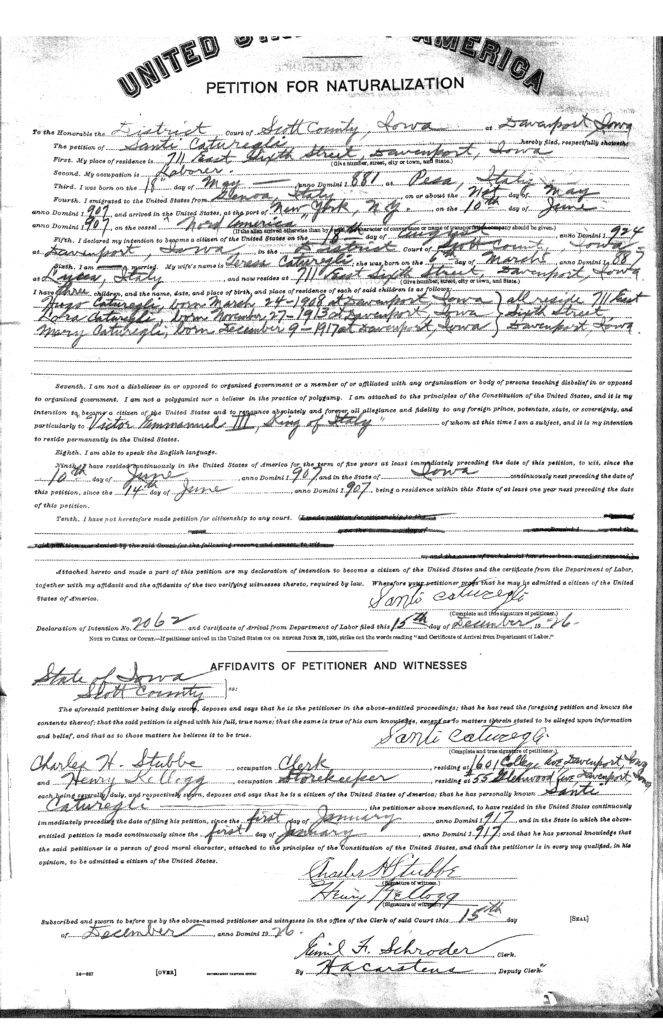 UNITED STATES OF AMERICA
PETITION FOR NATURALIZATION
To the Honorable the District Court of Scott County, Iowa at Davenport Iowa
The petition of Santi Caturegli, hereby filed, respectfully showeth:
First. My place of residence is 711 East Sixth Street, Davenport, Iowa
(Give number, street, city or town, and State.)
Second. My occupation is Laborer.
Third. I was born on the 18" day of May anno Domini 1 881 at Pesa, Italy
Fourth. I emigrated to the United States from Genoa, Italy on or about the day of May
anno Domini 1 907, and arrived in the United States, at the port of New York N.Y. on the 10th day of June
anno Domini 1 907, on the vessel "Nord America"
(If the alien arrived otherwise than by vessel, the character of conveyance or name of transportation company should be given.)
Fifth. I declared my intention to become a citizen of the United States on the day of anno Domini 1 924
at Davenport, Iowa in the District Court of Scott County, Iowa
Sixth. I am married. My wife's name is Teresa Caturegli; she was born on the day of March anno Domini 1 887
at Italy and now resides at 711 East Sixth Street, Davenport, Iowa
(Give number, street, city or town, and State.)
I have three children, and the name, date, and place of birth, and place of residence of each of said children is as follows:
Hugo Caturegli, born March 24-1908 at Davenport, Iowa } all reside 711 East
Lora Caturegli, born November 27-1913 at Davenport, Iowa } Sixth Street,
Mary Caturegli, born December 9-1917 at Davenport, Iowa } Davenport, Iowa.
Seventh. I am not a disbeliever in or opposed to organized government or a member of or affiliated with any organization or body of persons teaching disbelief in or opposed
to organized government. I am not a polygamist nor a believer in the practice of polygamy. I am attached to the principles of the Constitution of the United States, and it is my
intention to become a citizen of the United States and to renounce absolutely and forever all allegiance and fidelity to any foreign prince, potentate, state, or sovereignty, and
particularly to Victor Emmanuel III, King of Italy" of whom at this time I am a subject, and it is my intention
to reside permanently in the United States.
Eighth. I am able to speak the English language.
Ninth. I have resided continuously in the United States of America for the term of five years at least immediately preceding the date of this petition, to wit, since the
10th day of June, anno Domini 1 907, and in the State of Iowa continuously next preceding the date of
this petition, since the 14th day of June, anno Domini 1 907, being a residence within this State of at least one year next preceding the date
of this petition.
Tenth. I have not heretofore made petition for citizenship to any court. (I made petition for citizenship to the
anno Domini 1 and the
said petition was denied by the said Court for the following reasons and causes, to wit:
and the cause of such denial has since been cured or removed.)
Attached hereto and made a part of this petition are my declaration of intention to become a citizen of the United States and the certificate from the Department of Labor,
together with my affidavit and the affidavits of the two verifying witnesses thereto, required by law. Wherefore your petitioner prays that he may be admitted a citizen of the United
States of America.
Santi Caturegli
(Complete and true signature of petitioner.)
Declaration of Intention No. 2062 and Certificate of Arrival from Department of Labor filed this 15th day of December, 19 26.
NOTE TO CLERK OF COURT.—If petitioner arrived in the United States ON OR BEFORE JUNE 29, 1906, strike out the words reading "and Certificate of Arrival from Department of Labor."
AFFIDAVITS OF PETITIONER AND WITNESSES
State of Iowa
Scott County } ss:
The aforesaid petitioner being duly sworn, deposes and says that he is the petitioner in the above-entitled proceedings; that he has read the foregoing petition and knows the
contents thereof; that the said petition is signed with his full, true name; that the same is true of his own knowledge, except as to matters therein stated to be alleged upon information
and belief, and that as to those matters he believes it to be true.
Santi Caturegli
(Complete and true signature of petitioner.)
Charles H. Stubbe occupation Clerk residing at 1601 College Ave Davenport Iowa
and Henry Kellogg, occupation Storekeeper residing at 55 Glenwood Ave, Davenport Iowa
each being severally, duly, and respectively sworn, deposes and says that he is a citizen of the United States of America; that he has personally known Santi
Caturegli the petitioner above mentioned, to have resided in the United States continuously
immediately preceding the date of filing his petition, since the first day of January anno Domini 1 917, and in the State in which the above-
entitled petition is made continuously since the first day of January, anno Domini 1 917; and that he has personal knowledge that
the said petitioner is a person of good moral character, attached to the principles of the Constitution of the United States, and that the petitioner is in every way qualified, in his
opinion, to be admitted a citizen of the United States.
Charles H Stubbe
(Signature of witness.)
Henry Kellogg
(Signature of witness.)
Subscribed and sworn to before me by the above-named petitioner and witnesses in the office of the Clerk of said Court this 15th day
of December, anno Domini 19 26.
[SEAL]
Emil F. Schroder, Clerk.
By H A Carstens, Deputy Clerk.
14—227
[OVER]
GOVERNMENT PRINTING OFFICE